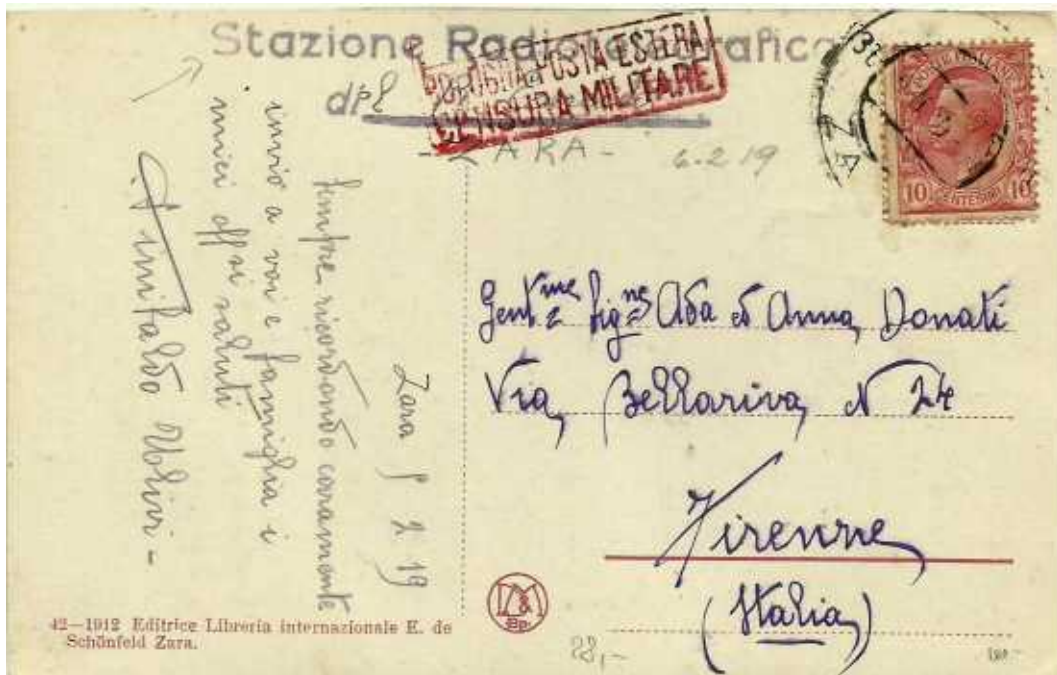 Stazione Radiotelegrafica
BOLOGNA POSTA ESTERA
CENSURA MILITARE
- ZARA - 6.2.19
10 CENTESIMI 10
Zara 5 2 19
Sempre ricordando caramente
invio a voi e famiglia i
miei aff.si saluti
Ulivi -
Gent.me Sig.ne Ada ed Anna Donati
Via Bellariva N 24
Firenze
(Italia)
D&M
Bp.
42—1912 Editrice Libreria internazionale E. de
Schönfeld Zara.
28,-